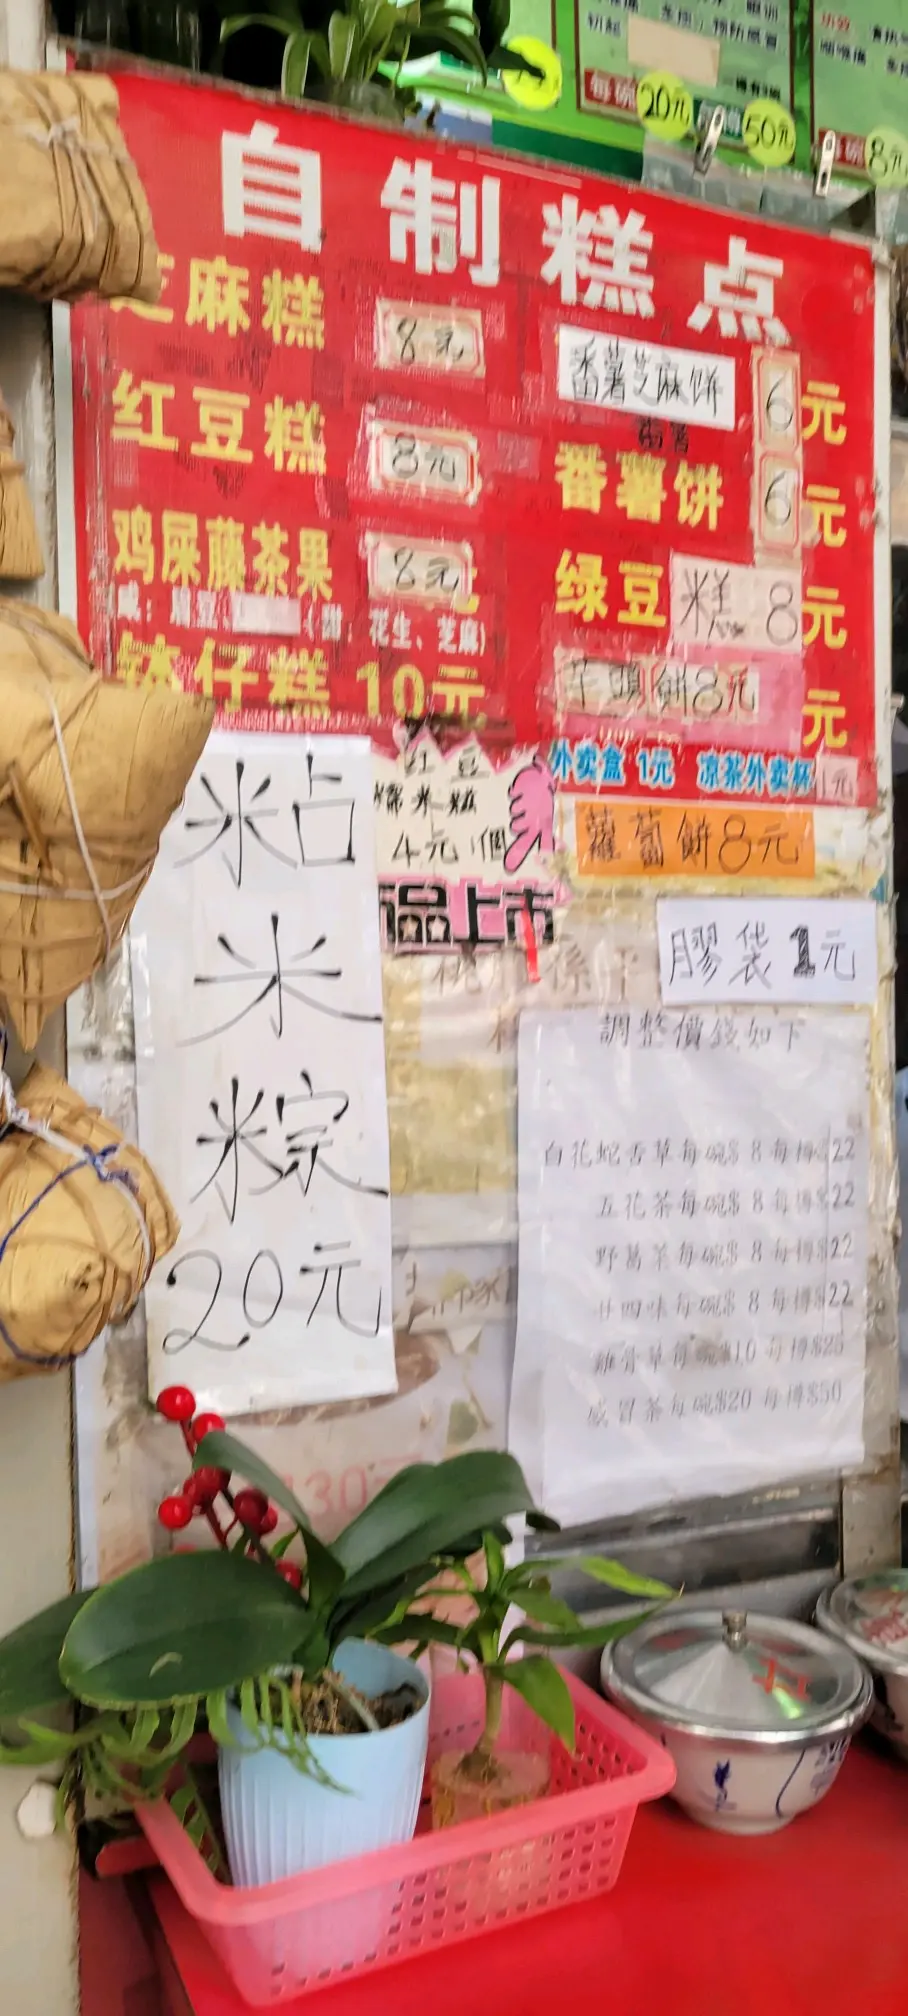 切起
每碗
20元
50元
8元
自制糕点
芝麻糕 8元
番薯芝麻饼 6元
红豆糕 8元
番薯饼 6元
鸡屎藤茶果 8元
绿豆糕 8元
花生、芝麻)
钵仔糕 10元
芋頭餅8元
元
外卖盒 1元 凉茶外卖杯1元
红豆
糯米糍
4元1個
品上市
蘿蔔餅8元
膠袋1元
粘
米
粽
20元
調整價錢如下
白花蛇舌草每碗$ 8 每樽$22
五花茶每碗$ 8 每樽$22
野葛菜每碗$ 8 每樽$22
廿四味每碗$ 8 每樽$22
雞骨草每碗$10 每樽$25
感冒茶每碗$20 每樽$50